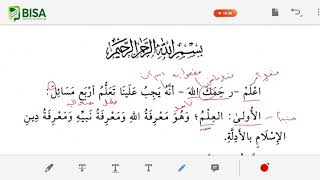 BISA
بسم الله الرحمن الرحيم
اعْلَمْ - رَحِمَكَ اللهُ - أَنَّهُ يَجِبُ عَلَيْنَا تَعَلُّمُ أَرْبَعِ مَسَائِلَ:
الأُولَىٰ: العِلْمُ؛ وَهُوَ مَعْرِفَةُ اللهِ وَمَعْرِفَةُ نَبِيِّهِ وَمَعْرِفَةُ دِينِ
الإِسْلَامِ بالأَدِلَّةِ.